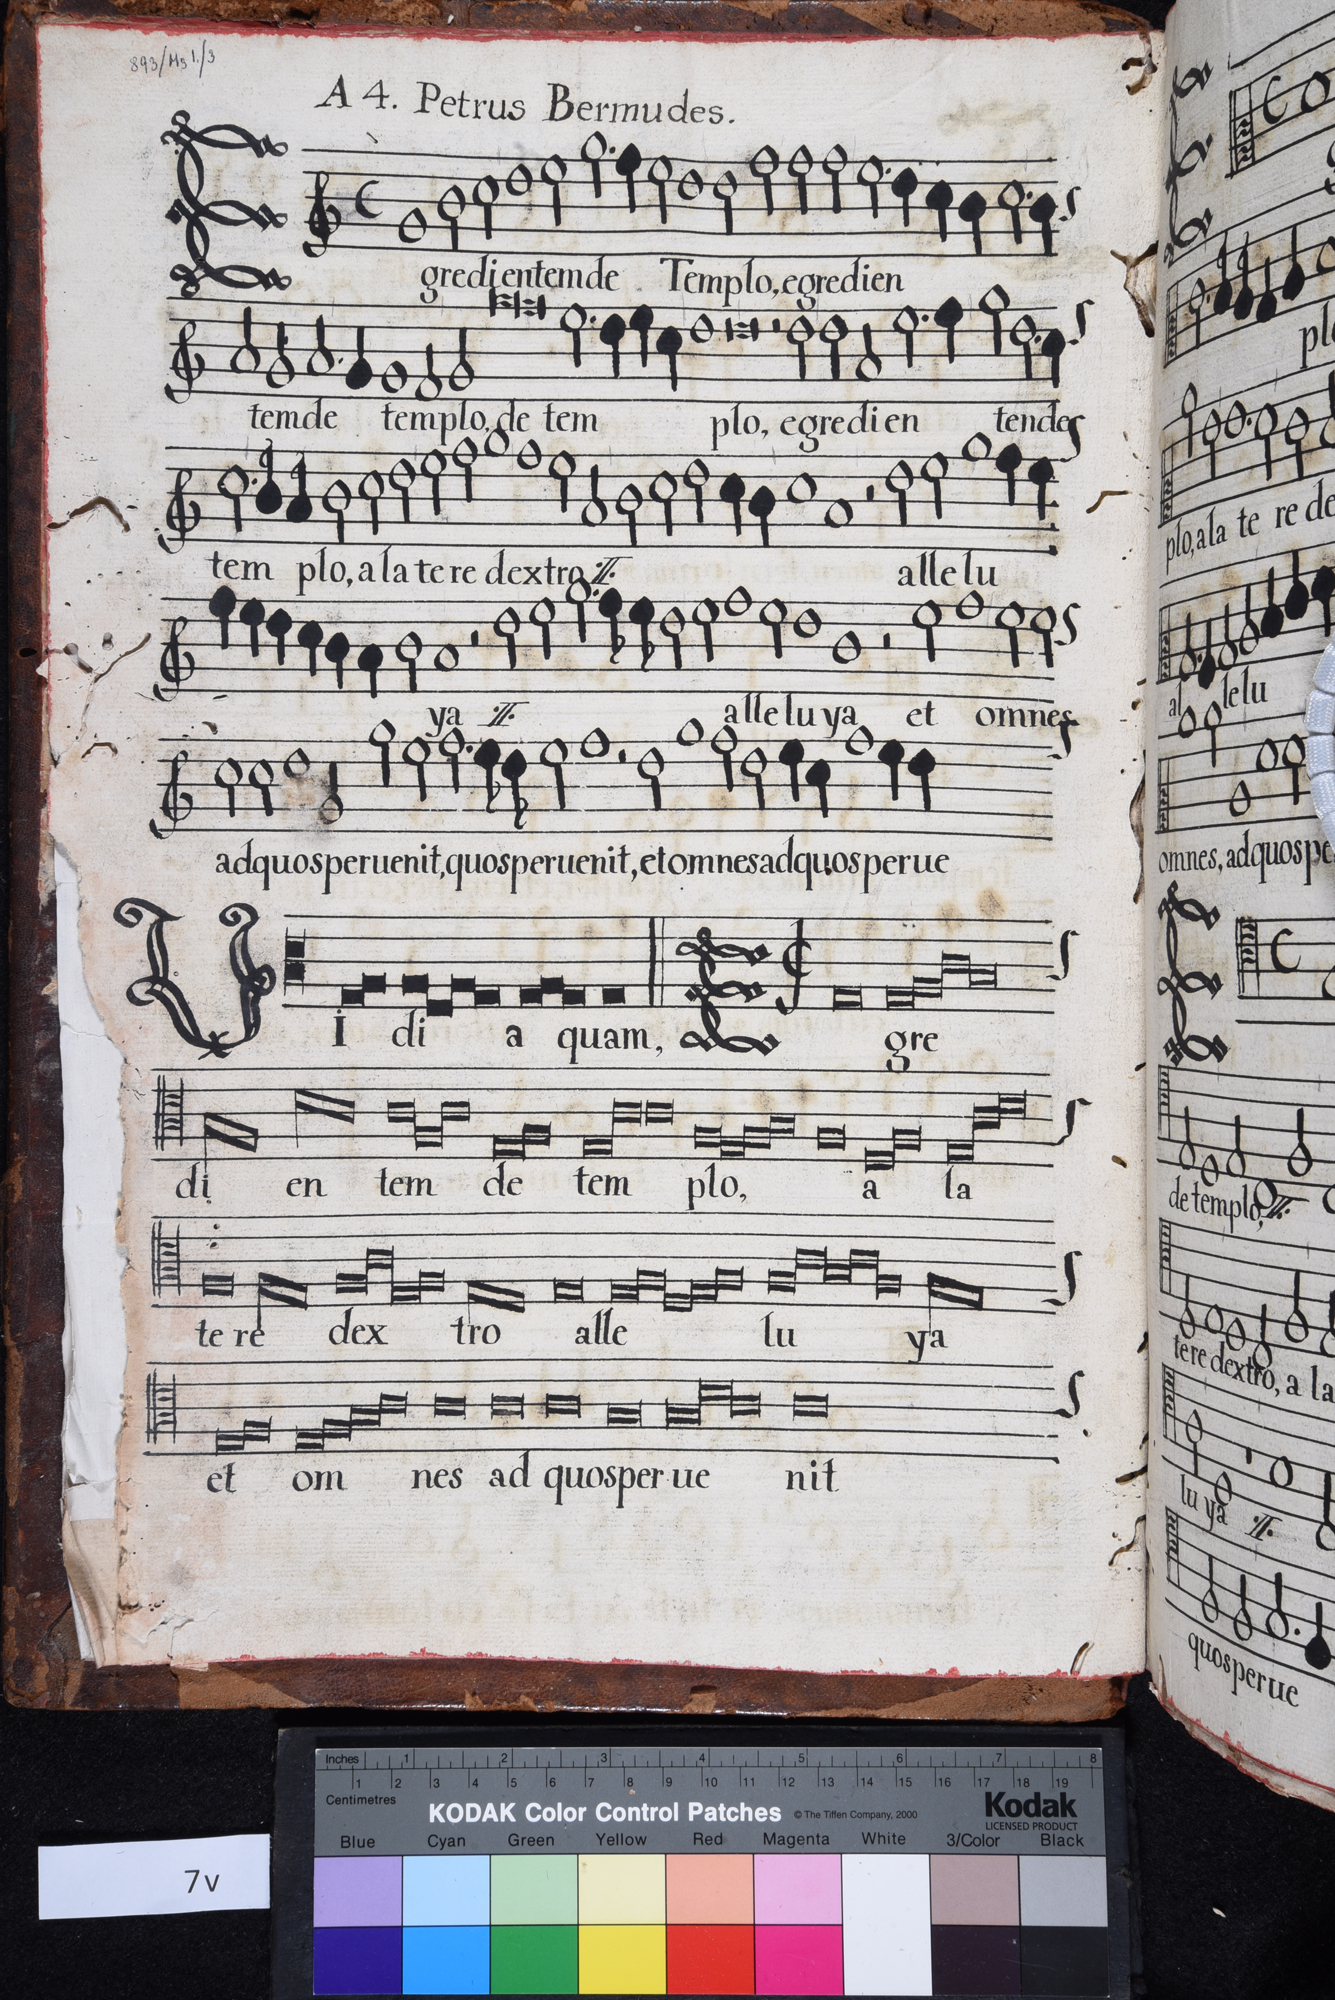 893/Ms1./3
A 4. Petrus Bermudes.
E
gredientemde Templo, egredien
temde templo, de tem plo, egredien tende
tem plo, a la te re dextro :II: alle lu
ya :II: alle lu ya et omnes
adquosperuenit, quosperuenit, et omnesadquosperue
V I di a quam, E gre
di en tem de tem plo, a la
te re dex tro alle lu ya
et om nes ad quosperue nit
plo
plo, a la te re de
al le lu
omnes, adquospe
E
de templo, :II:
tere dextro, a la
lu ya :II:
quosperue
7v
Inches 1 2 3 4 5 6 7 8
Centimetres 1 2 3 4 5 6 7 8 9 10 11 12 13 14 15 16 17 18 19
KODAK Color Control Patches © The Tiffen Company, 2000 Kodak
LICENSED PRODUCT
Blue Cyan Green Yellow Red Magenta White 3/Color Black